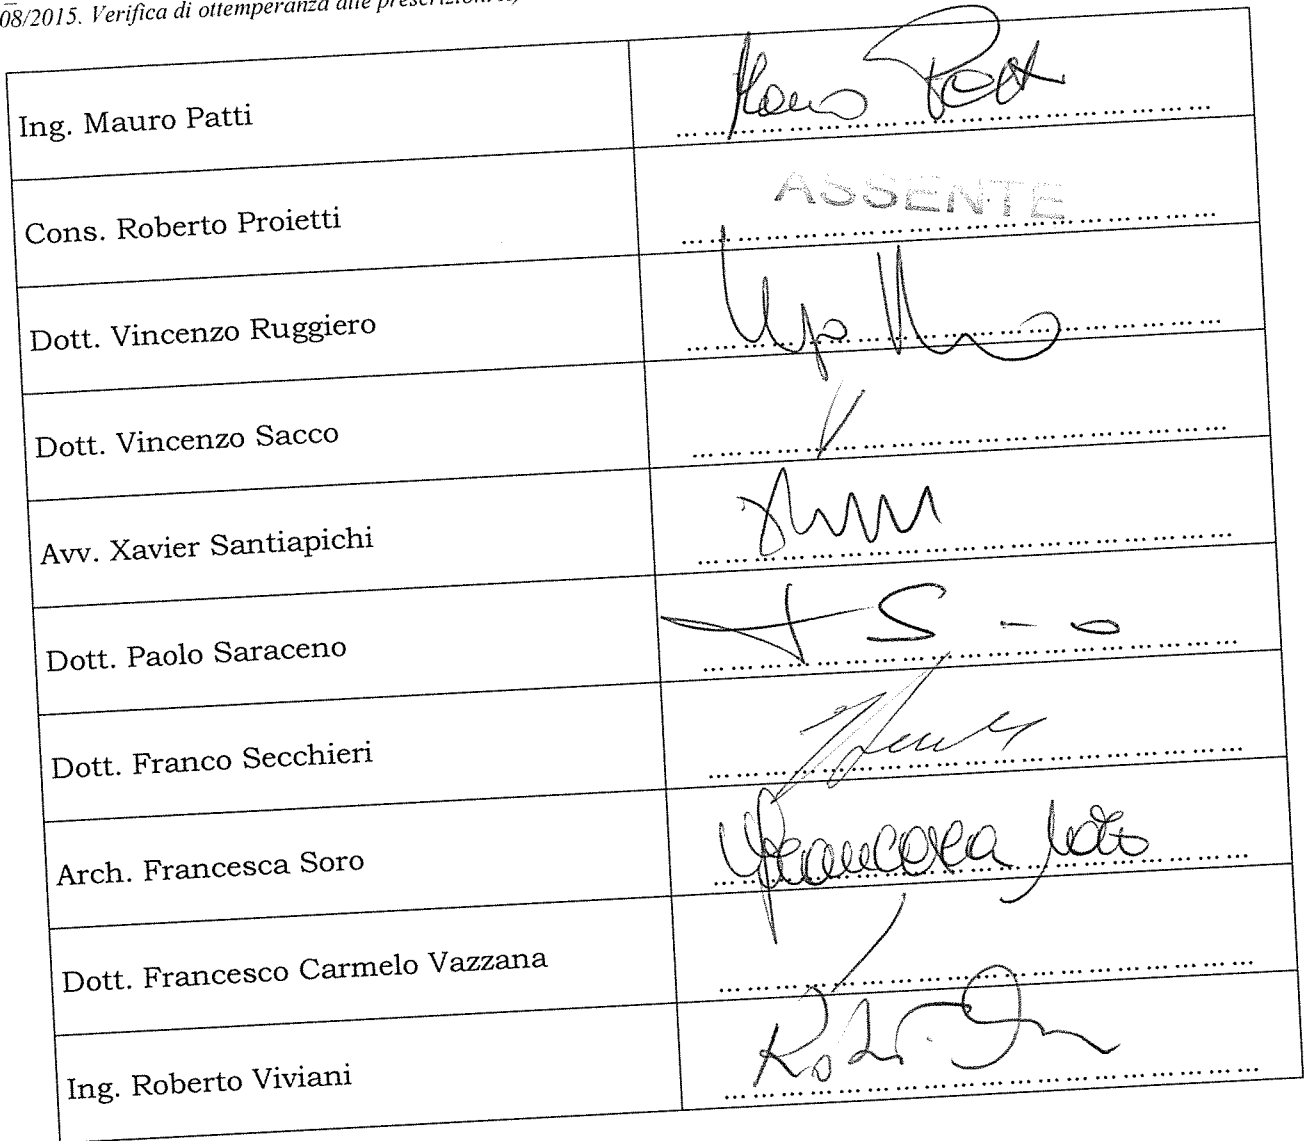 08/2015. Verifica di ottemperanza alle
Ing. Mauro Patti
Mauro Patti
Cons. Roberto Proietti
ASSENTE
Dott. Vincenzo Ruggiero
Dott. Vincenzo Sacco
Avv. Xavier Santiapichi
Dott. Paolo Saraceno
Dott. Franco Secchieri
Arch. Francesca Soro
Francesca Soro
Dott. Francesco Carmelo Vazzana
Ing. Roberto Viviani